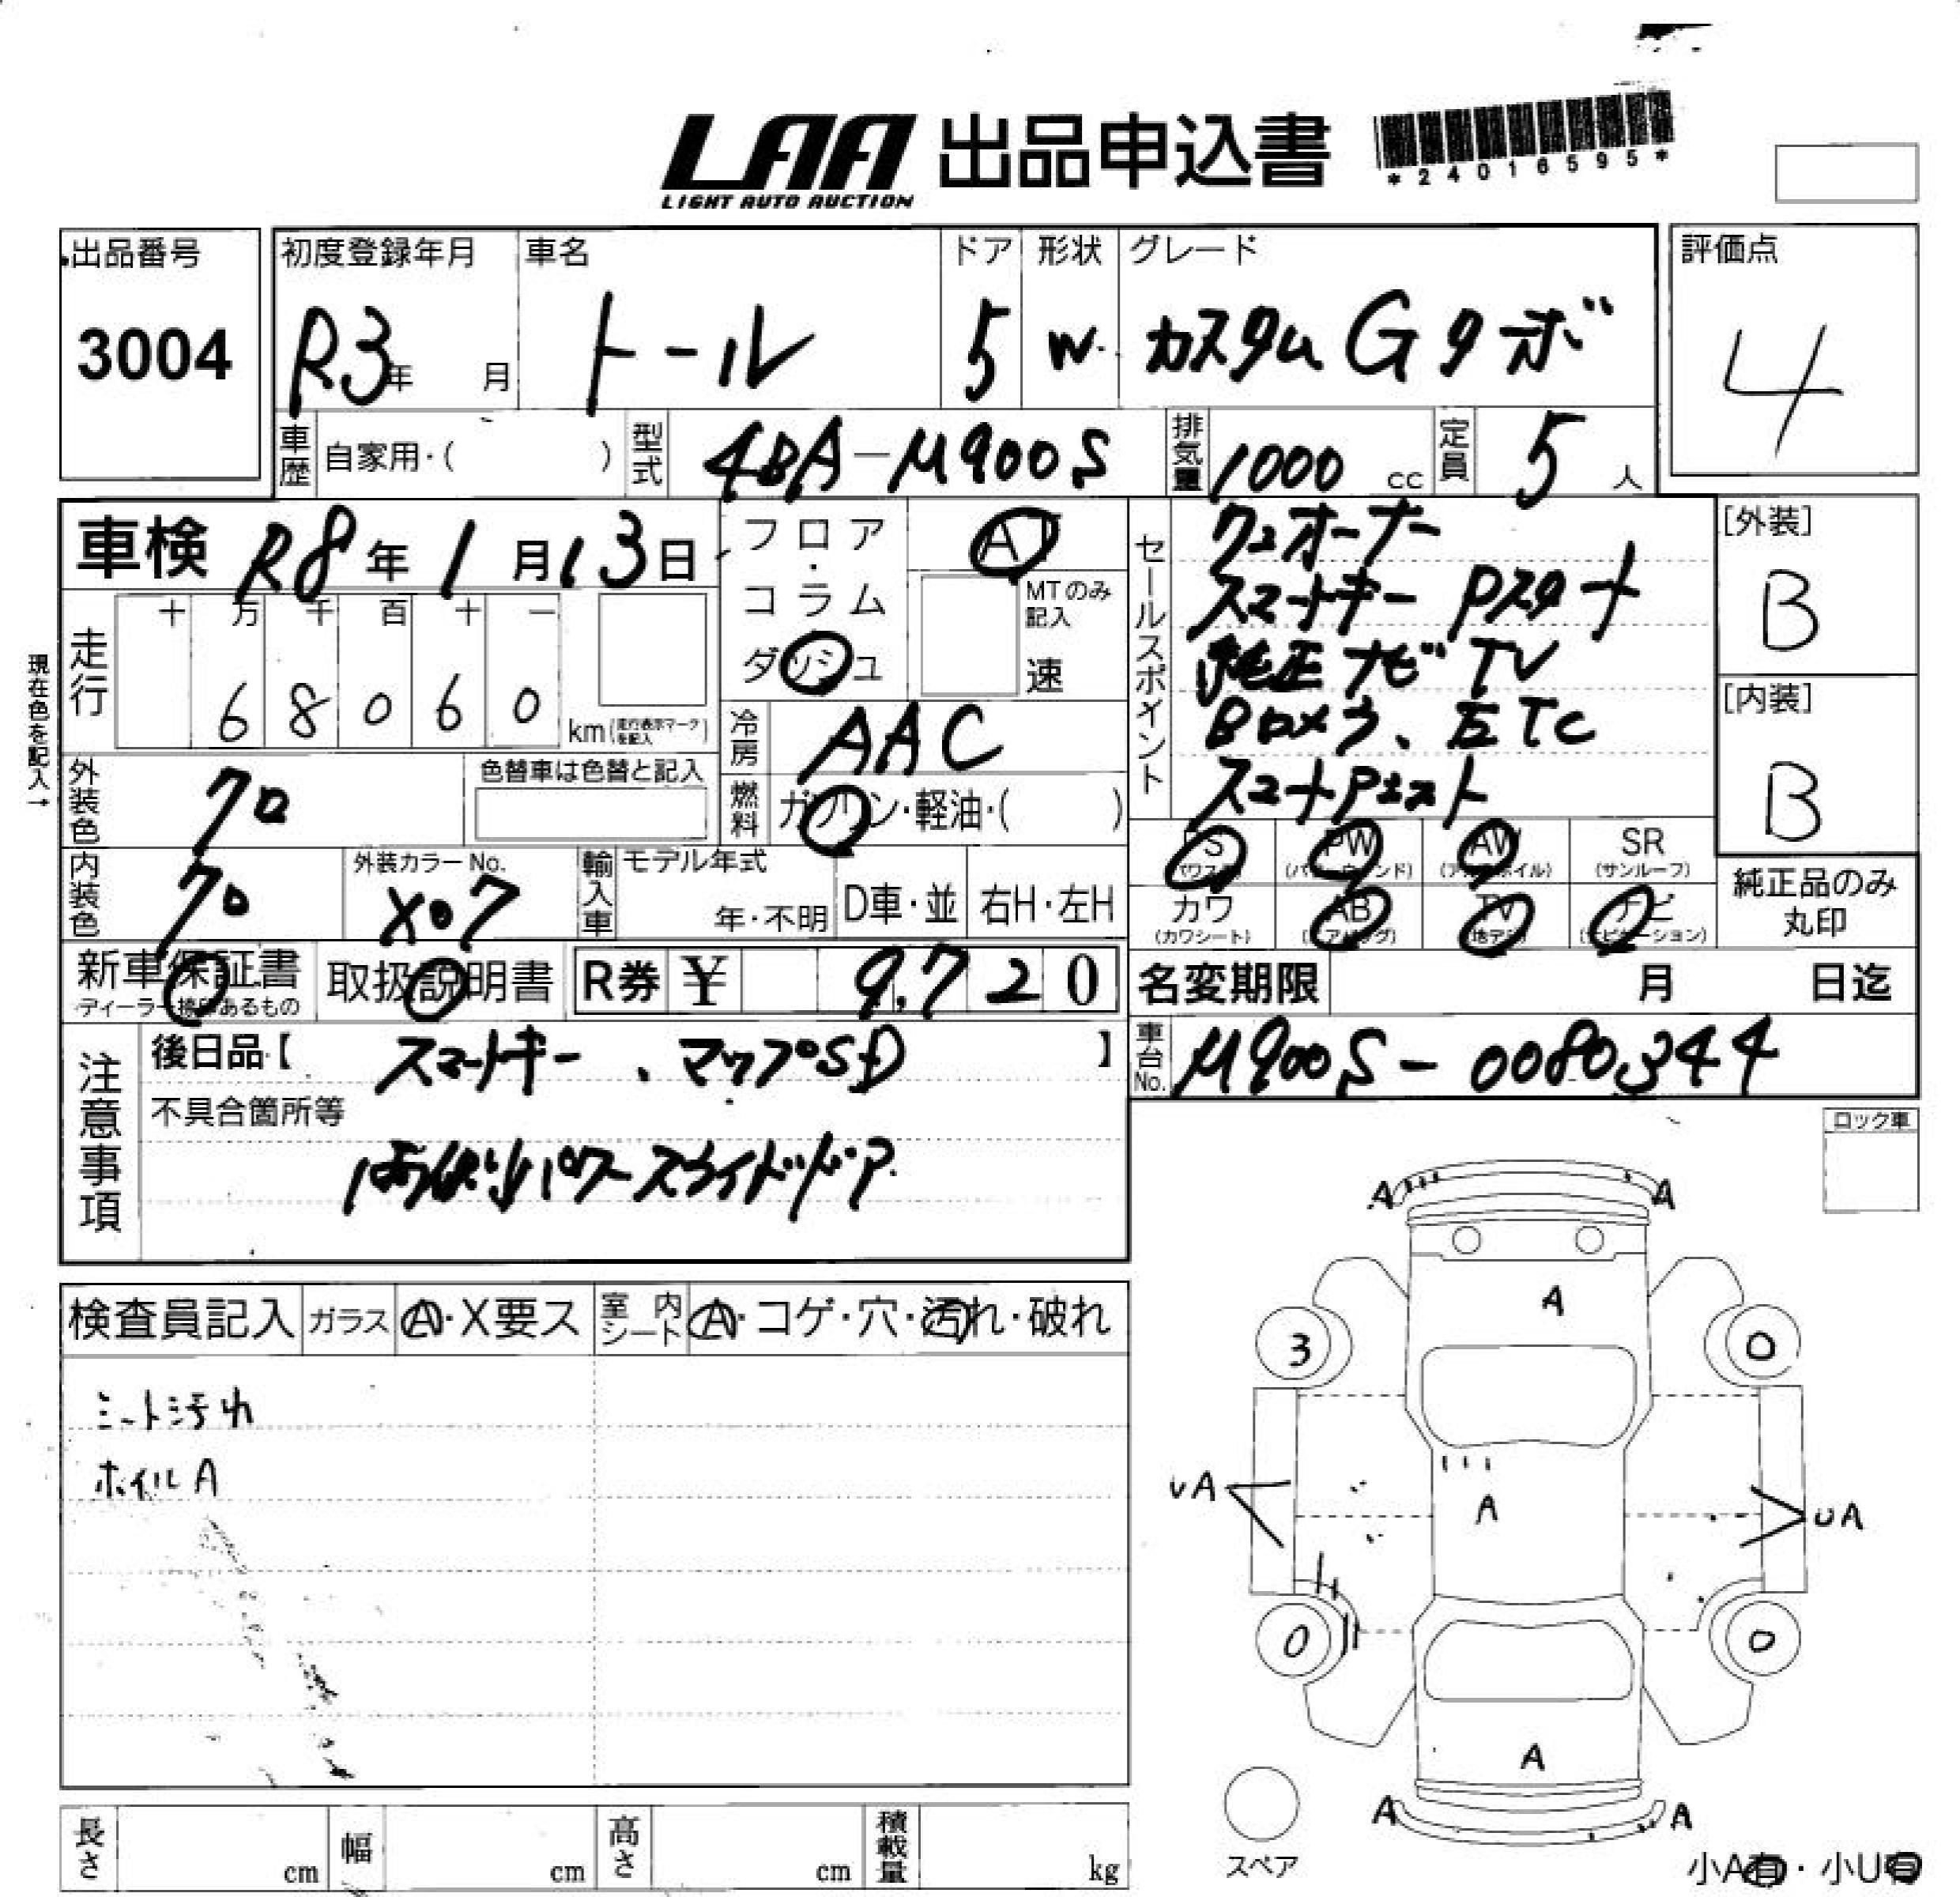 LAA 出品申込書
LIGHT AUTO AUCTION
*24016595*
出品番号
3004
初度登録年月
R3年 月
車名
トール
ドア
5
形状
W
グレード
カスタムGターボ
評価点
4
車歴 自家用・( )
型式 4BA-M900S
排気量 1000 cc
定員 5 人
車検 R8年1月13日
フロア・コラム
ダッシュ
AT
MTのみ記入
速
セールスポイント
ワンオーナー
スマートキー Pスタート
純正ナビTV
Bカメラ、ETC
[外装]
B
[内装]
B
現在色を記入→
走行 十 万 千 百 十 一
6 8 0 6 0 km(走行表示マークを記入)
冷房 AAC
燃料 ガソリン・軽油・( )
外装色 クロ
色替車は色替と記入
内装色 クロ
外装カラーNo.
X07
輸入車 モデル年式
年・不明
D車・並
右H・左H
PS (パワステ)
PW (パワーウィンド)
AW (アルミホイル)
SR (サンルーフ)
カワ (カワシート)
AB (エアバッグ)
TV (地デジ)
ナビ (ナビゲーション)
純正品のみ丸印
新車保証書
ディーラー捺印あるもの
取扱説明書
R券 ¥ 9,720
名変期限 月 日迄
注意事項
後日品【 スマートキー、マップSD 】
不具合箇所等
両側パワースライドドア
車台No. M900S-0080344
ロック車
検査員記入 ガラス A・X要ス 室内シート A・コゲ・穴・汚れ・破れ
シート汚れ
ホイルA
A A
A
3 0
UA A UA
0 0
A
A A
スペア
小A有・小U有
長さ cm 幅 cm 高さ cm 積載量 kg